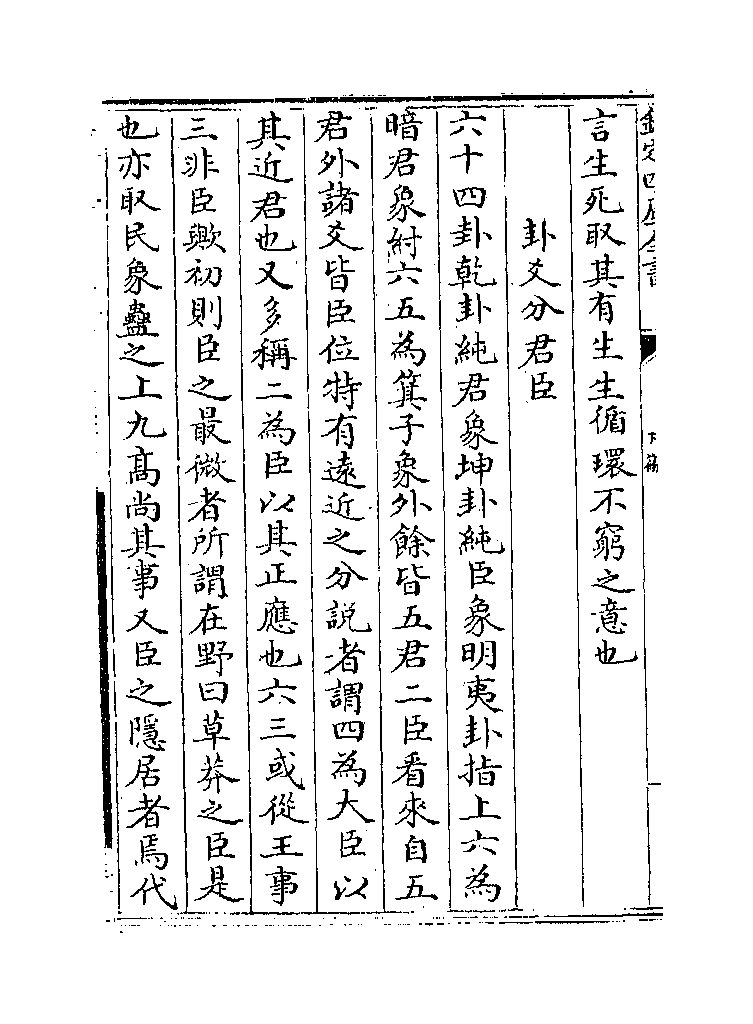 欽定四庫全書
下篇
言生死取其有生生循環不窮之意也
卦爻分君臣
六十四卦乾卦純君象坤卦純臣象明夷卦指上六為
暗君象紂六五為箕子象外餘皆五君二臣看來自五
君外諸爻皆臣位特有遠近之分說者謂四為大臣以
其近君也又多稱二為臣以其正應也六三或從王事
三非臣歟初則臣之最微者所謂在野曰草莽之臣是
也亦取民象蠱之上九髙尚其事又臣之隱居者焉代